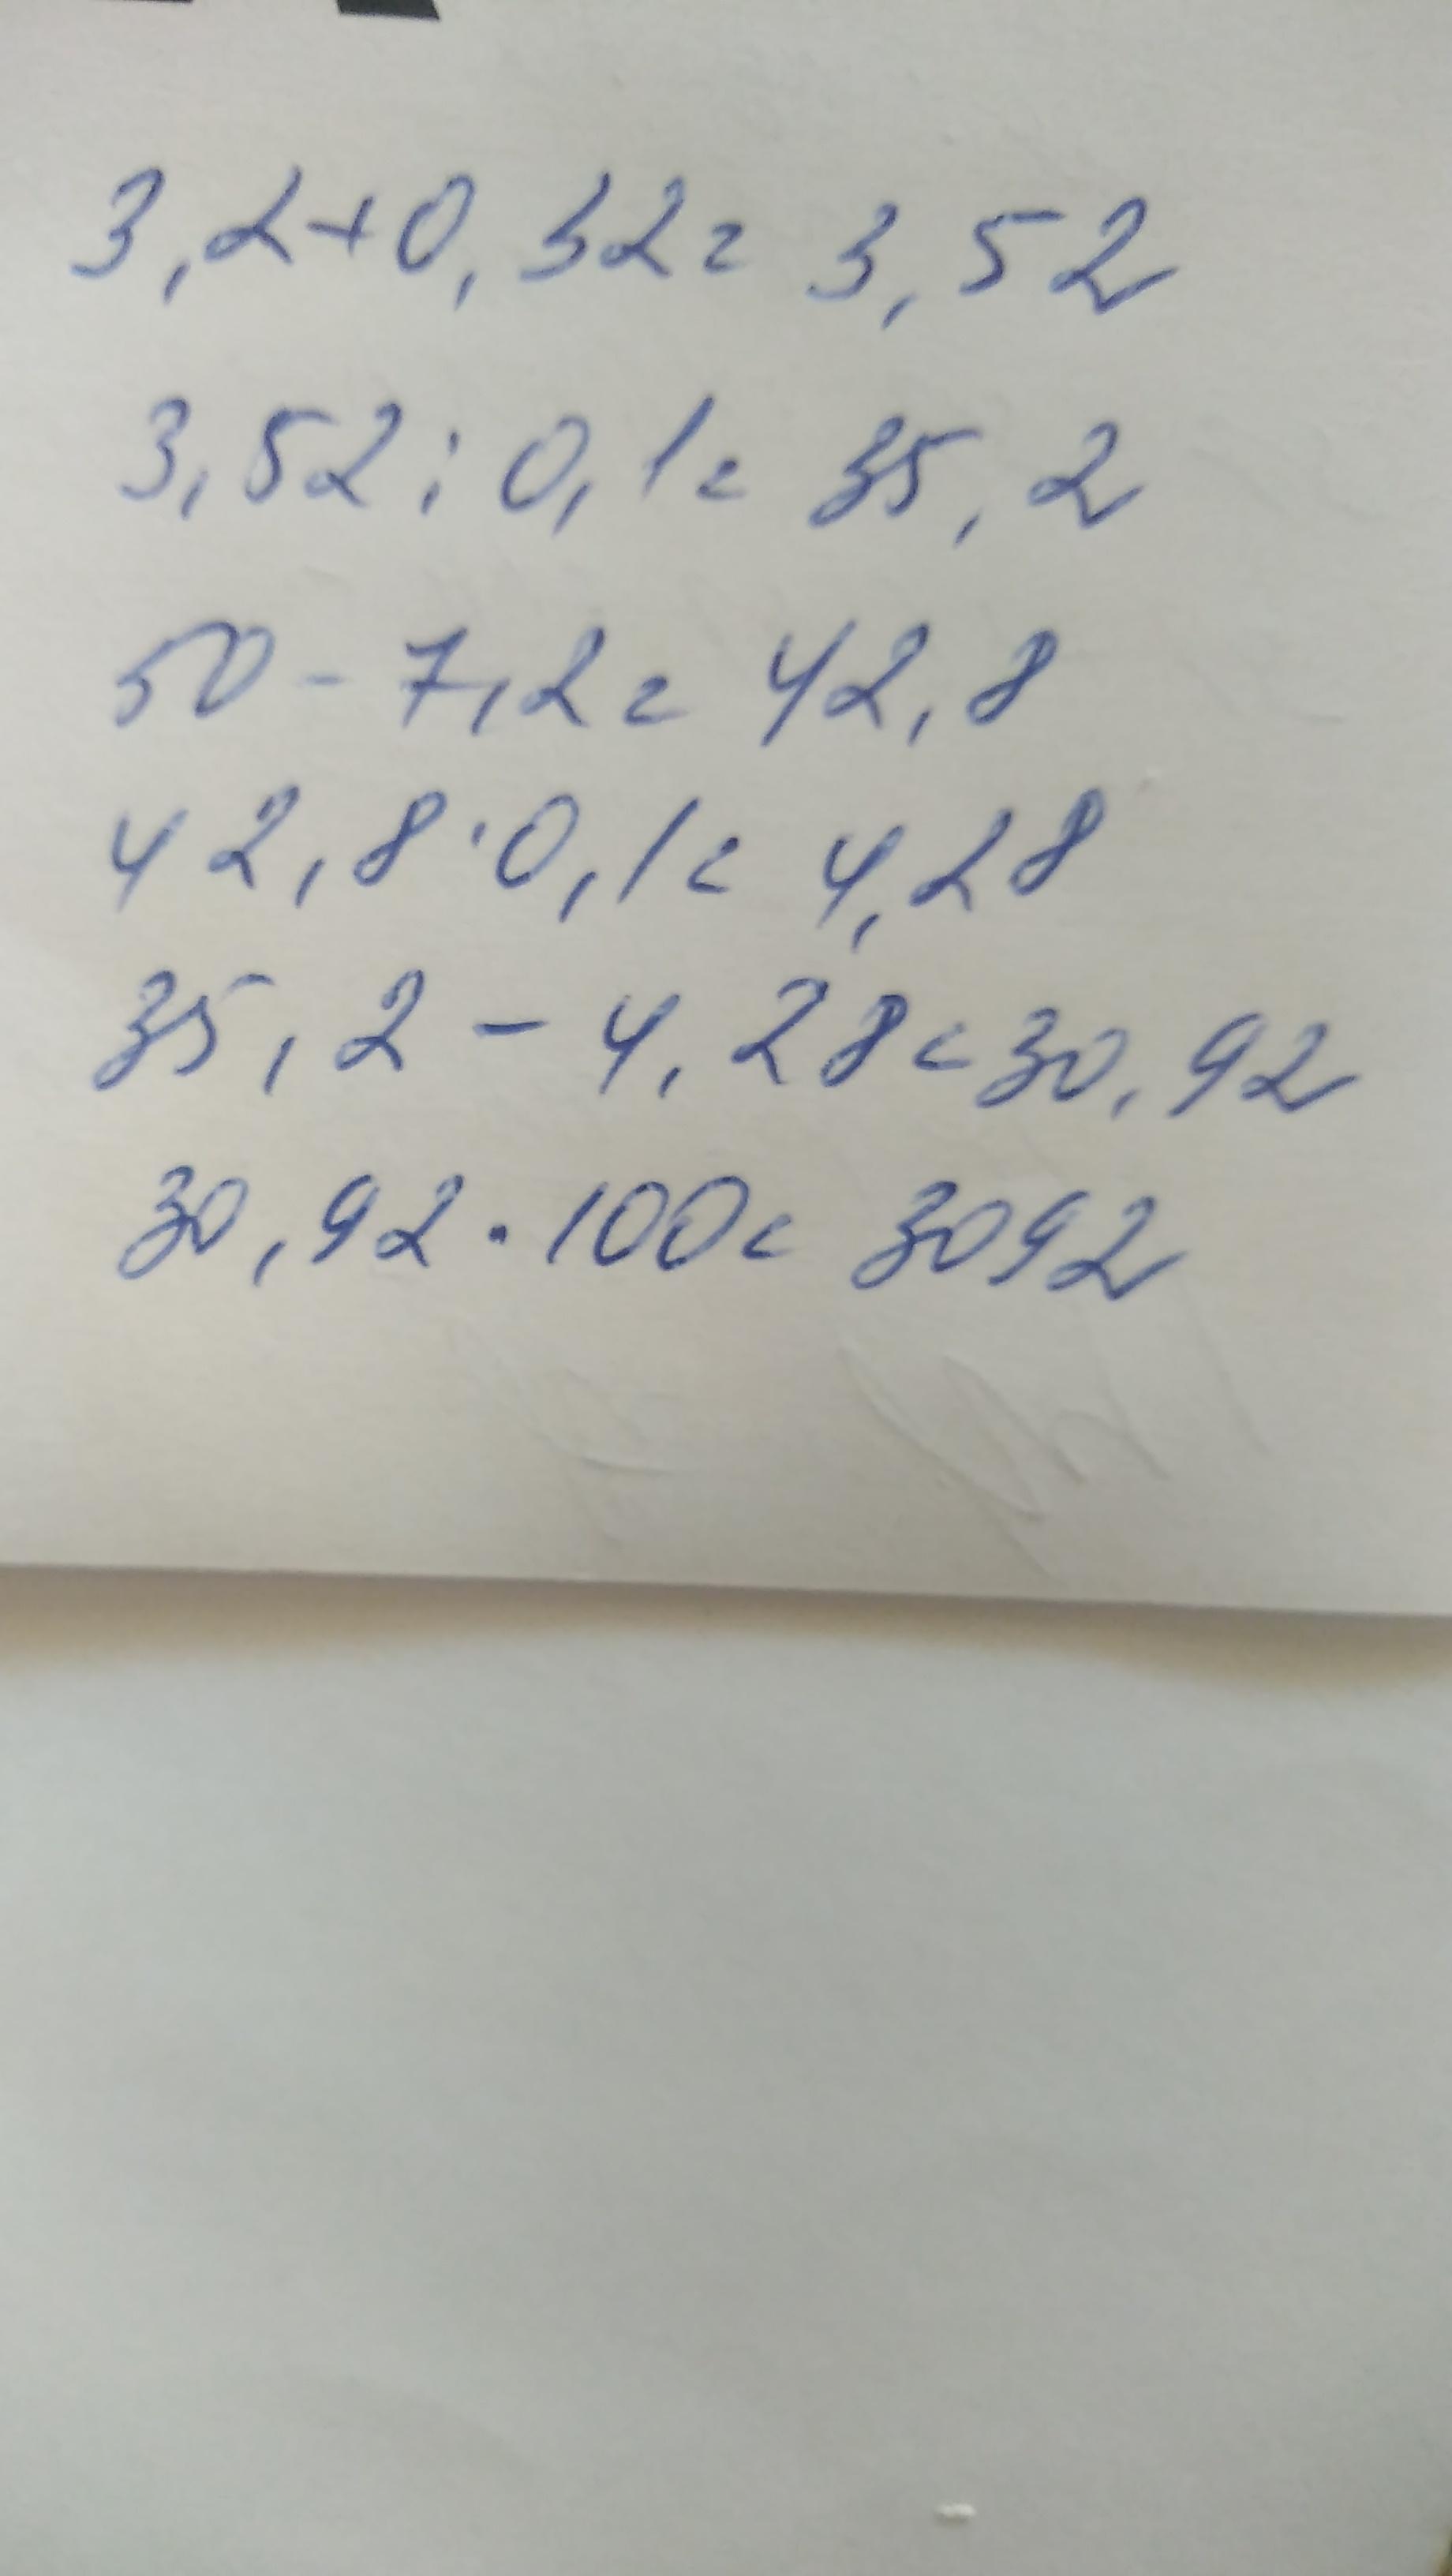 3,2+0,32= 3,52
3,52:0,1= 35,2
50-7,2= 42,8
42,8·0,1= 4,28
35,2-4,28=30,92
30,92·100= 3092